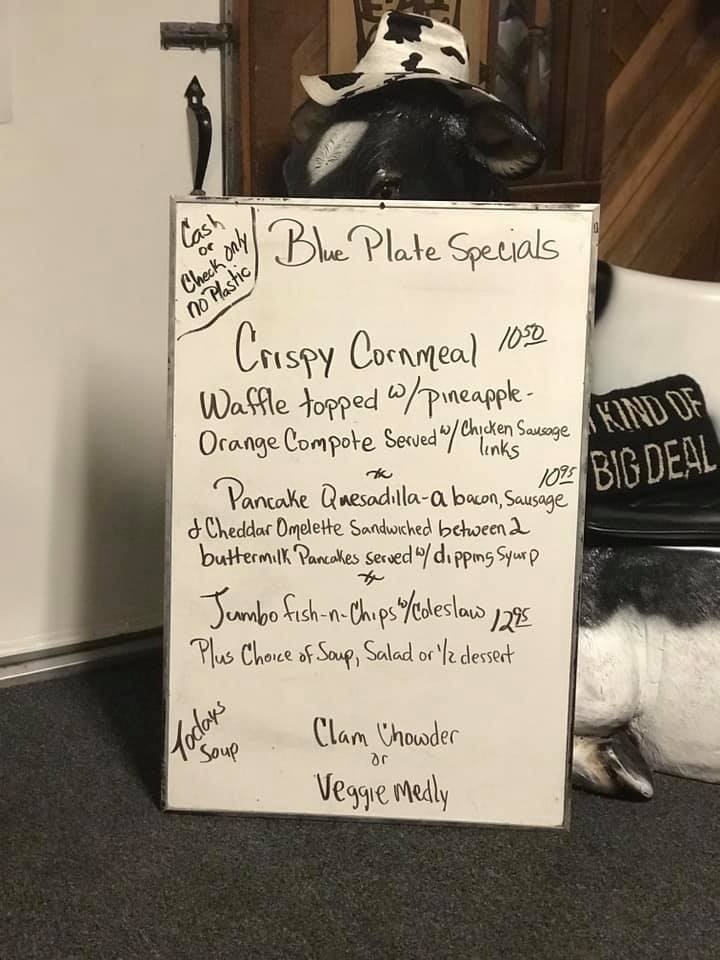 Cash
or
Check only
no Plastic
Blue Plate Specials
Crispy Cornmeal 10.50
Waffle topped w/pineapple-
Orange Compote Served w/Chicken Sausage
links
10.95
Pancake Quesadilla-a bacon, Sausage
& Cheddar Omelette Sandwiched between 2
buttermilk Pancakes served w/dipping Syurp
Jumbo fish-n-Chips w/Coleslaw 12.95
Plus Choice of Soup, Salad or 1/2 dessert
Todays
Soup
Clam Chowder
or
Veggie Medly
KIND OF
BIG DEAL